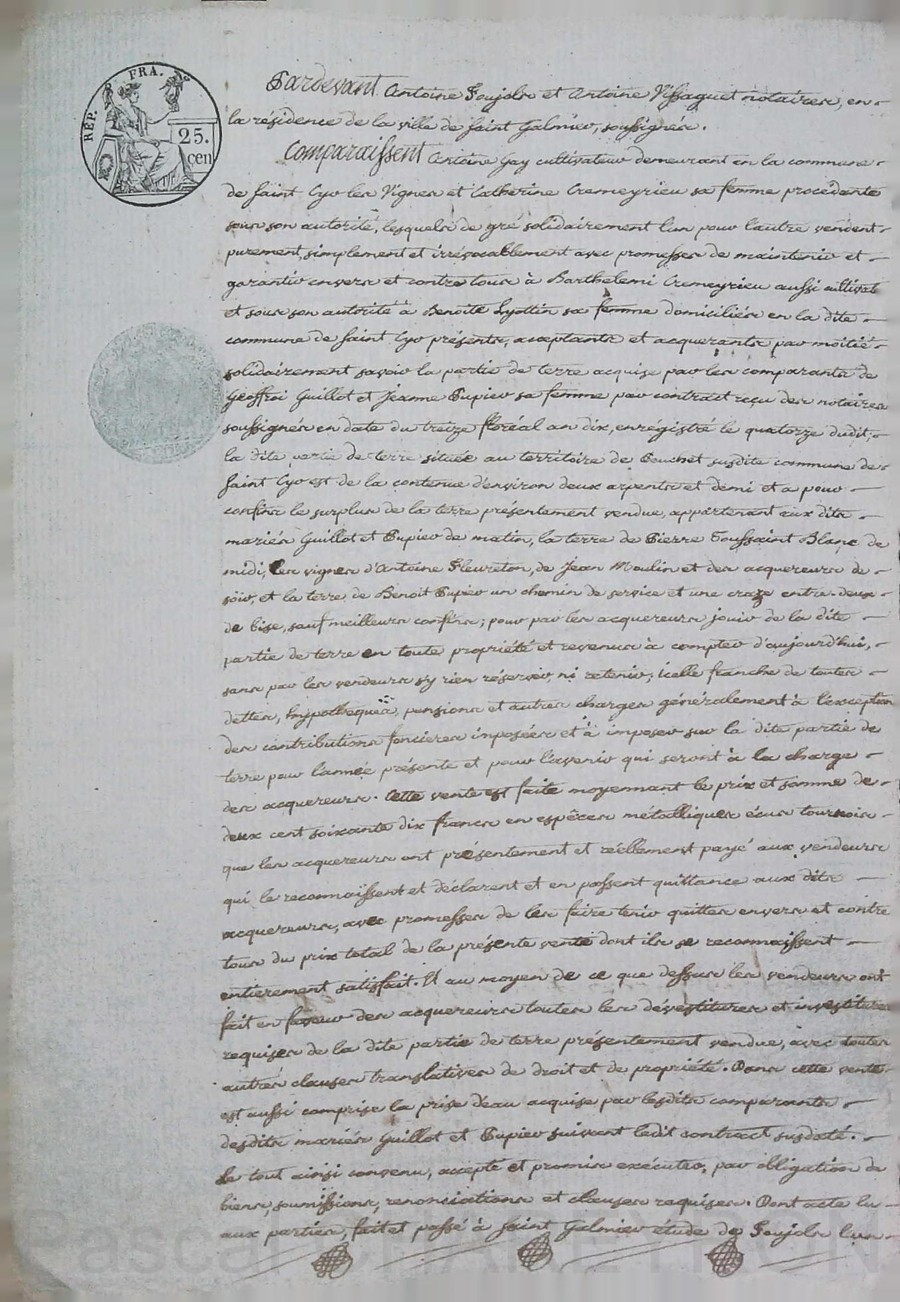 RÉP. FRA.
25.
cen
Pardevant Antoine Soujolr et Antoine Vissaguet notaires, en
la résidence de la ville de Saint Galmier, soussignés.
Comparaissent Antoine Gay cultivateur demeurant en la commune
de Saint Cyr les Vignes et Catherine Crameyrieu sa femme procédante
sous son autorité, lesquels de gré solidairement l'un pour l'autre vendent
purement, simplement et irrévocablement avec promesses de maintenir et
garantir envers et contre tous à Barthelemi Crameyrieu aussi cultivat
et sous son autorité à Benoite Lyottin sa femme domiciliés en la dite
commune de Saint Cyr présents, acceptants et acquerants par moitié
solidairement savoir la partie de terre acquise par les comparants de
Géoffroi Guillot et Jeanne Pupier sa femme par contract reçu des notaires
soussignés en date du treize floréal an dix, enregistré le quatorze dudit;
la dite partie de terre située au territoire de Bouchet susdite commune de
Saint Cyr est de la contenue d'environ deux arpents et demi et a pour
confins le surplus de la terre présentement vendue, appartenant aux dits
mariés Guillot et Pupier de matin, la terre de Pierre Toussaint Blanc de
midi, les vignes d'Antoine Fleureton, de Jean Moulin et des acquereurs de
soir, et la terre de Benoit Pupier un chemin de service et une craze entre-deux
de bise, sauf meilleurs confins; pour par les acquereurs jouir de la dite
partie de terre en toute propriété et revenus à compter d'aujourd'hui,
sans par les vendeurs s'y rien réserver ni retenir; icelle franche de toutes
dettes, hypothèques, pensions et autres charges généralement à l'exception
des contributions foncieres imposées et à imposer sur la dite partie de
terre pour l'année présente et pour l'avenir qui seront à la charge
des acquereurs. Cette vente est faite moyennant le prix et somme de
deux cent soixante dix francs en espèces métalliques écus tournois
que les acquereurs ont présentement et réellement payé aux vendeurs
qui le reconnaissent et déclarent et en passent quittance aux dits
acquereurs, avec promesses de les faire tenir quittes envers et contre
tous du prix total de la présente vente dont ils se reconnaissent
entierement satisfait. Et au moyen de ce que dessus les vendeurs ont
fait en faveur des acquereurs toutes les dévestitures et investitures
requises de la dite partie de terre présentement vendue, avec toutes
autres clauses translatives de droit et de propriété. Dans cette vente
est aussi comprise la prise d'eau acquise par lesdits comparants
desdits mariés Guillot et Pupier suivant ledit contract susdaté.
Le tout ainsi convenu, accepté et promis exécuter, par obligation de
biens, soumissions, renonciations et clauses requises. Dont acte lu
aux parties, fait et passé à Saint Galmier étude de Soujolr l'un